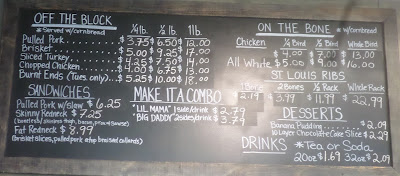 OFF THE BLOCK
*Served w/cornbread
¼lb. ½ lb. 1lb.
Pulled Pork $3.75 $6.50 $12.00
Brisket $5.00 $9.25 $17.00
Sliced Turkey $4.25 $7.50 $14.00
Chopped Chicken $4.00 $6.75 $13.00
Burnt Ends (Tues only) $5.25 $10.00 $18.00
SANDWICHES
Pulled Pork w/slaw $6.25
Skinny Redneck $7.25
Fat Redneck $8.99
(brisket slices, pulled pork atop braised collards)
MAKE IT A COMBO
"LIL MAMA" 1 side/drink $2.79
"BIG DADDY" 2 sides/drink $3.79
ON THE BONE
*w/cornbread
Chicken ¼ Bird ½ Bird Whole Bird
$4.00 $7.00 $13.00
All White $5.00 $9.00 $16.00
ST LOUIS RIBS
1 Bone 2 Bones ½ Rack Whole Rack
$2.19 $3.99 $11.99 $22.99
DESSERTS
Banana Pudding $2.09
10 Layer Chocolate Cake Slice $2.29
DRINKS *Tea or Soda
20oz $1.69 32oz $2.09